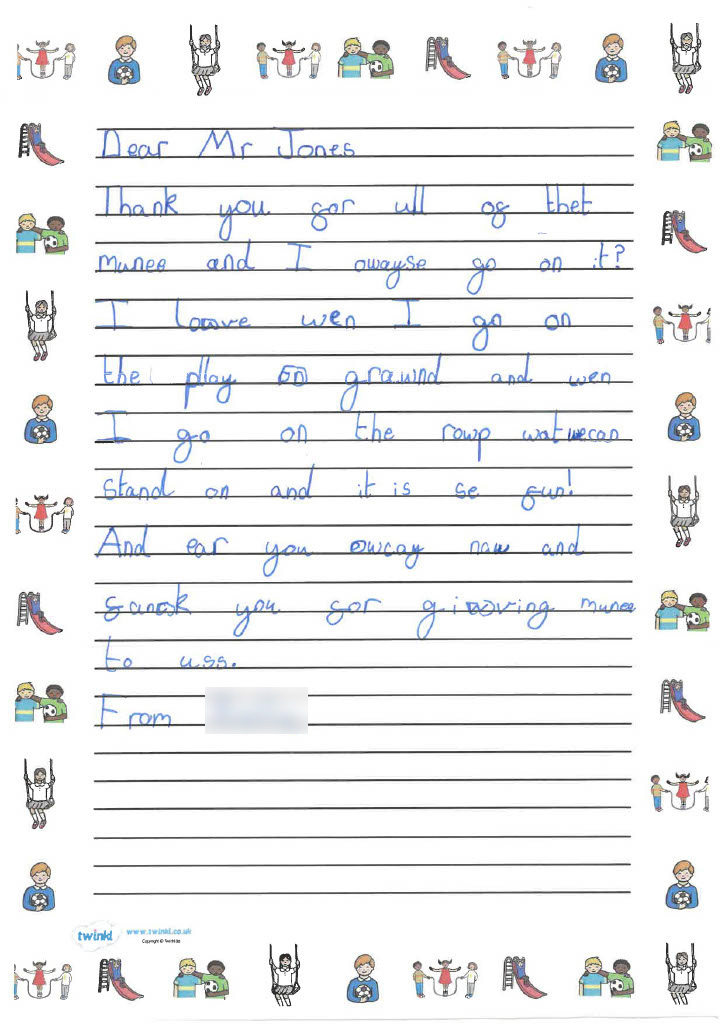 Dear Mr Jones
Thank you gor ull og thet
munee and I owayse go on it?
I loove wen I go on
the play on grawnd and wen
I go on the rowp wat we can
stand on and it is se gun!
And ear you owcay naw and
you gor giwoving munee
to uss.
From
twinkl www.twinkl.co.uk
Copyright © Twinkl Ltd